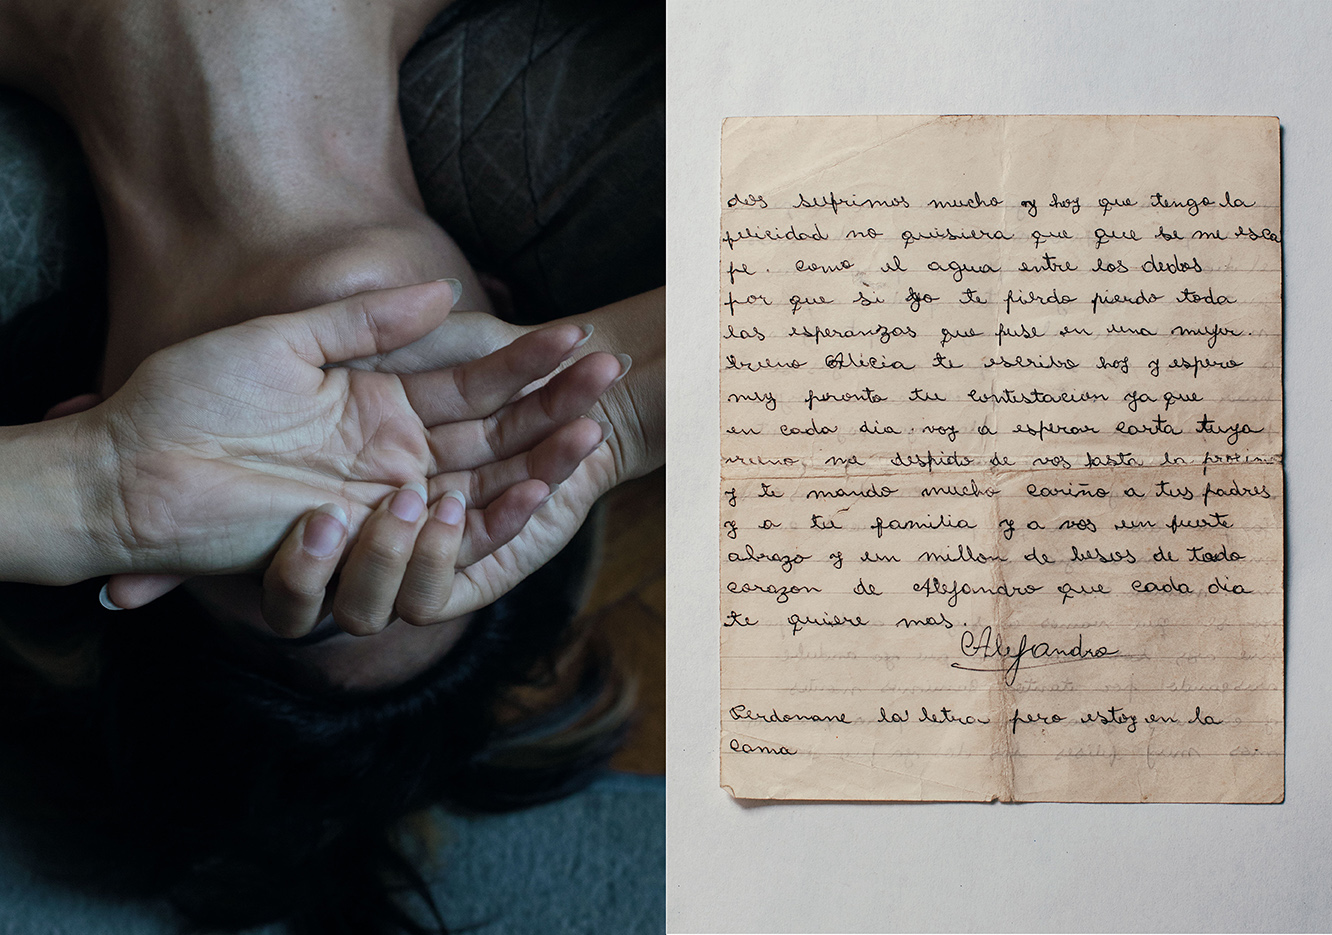 dos sufrimos mucho y hoy que tengo la
felicidad no quisiera que que se me esca
pe. como el agua entre los dedos
por que si yo te pierdo pierdo toda
las esperanzas que puse en una mujer.
bueno Alicia te escribo hoy y espero
muy peronto tu contestacion ya que
en cada dia. voy a esperar carta tuya
me despido de vos hasta la
y te mando mucho cariño a tus padres
y a tu familia y a vos un fuerte
abrazo y un millon de besos de todo
corazon de Alejandro que cada dia
te quiere mas.
Alejandro
Perdoname la letra pero estoy en la
cama